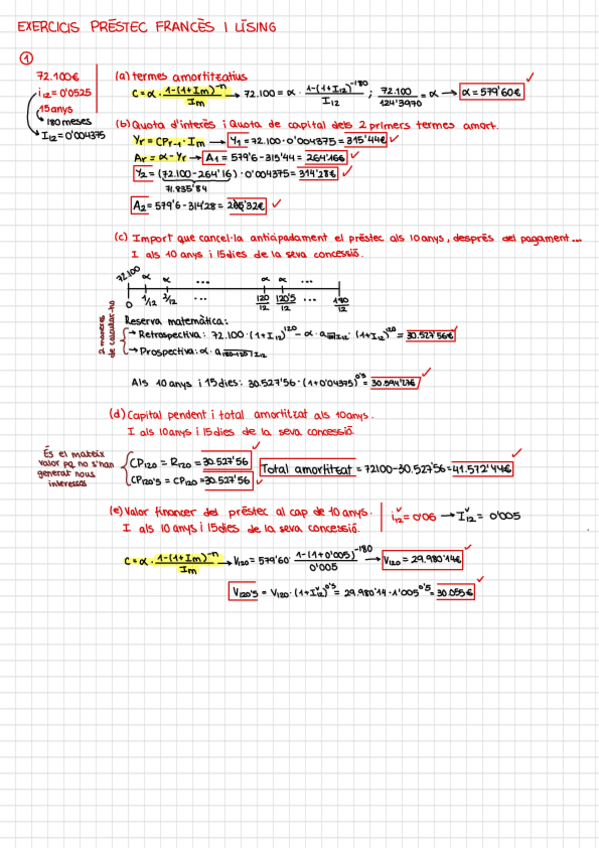 EXERCICIS PRÉSTEC FRANCÈS I LÍSING
1
72.100€
i12 = 0'0525
15 anys
180 meses
I12 = 0'004375
(a) termes amortitzatius
C = α · 1-(1+Im)^-n / Im → 72.100 = α · 1-(1+I12)^-180 / I12 ; 72.100 / 124'3970 = α → α = 579'60€
(b) Quota d'interès i Quota de capital dels 2 primers termes amort.
Yr = CPr-1 · Im → Y1 = 72.100 · 0'004375 = 315'44€
Ar = α - Yr → A1 = 579'6 - 315'44 = 264'16€
Y2 = (72.100 - 264'16) · 0'004375 = 314'28€
71.835'84
A2 = 579'6 - 314'28 = 265'32€
(c) Import que cancel·la anticipadament el préstec als 10 anys, després del pagament...
I als 10 anys i 15 dies de la seva concessió.
72.100 α α ... α α ...
0 1/12 2/12 ... 120/12 120'5/12 180/12
2 maneres de calcular-ho
Reserva matemàtica:
→ Retrospectiva: 72.100 · (1+I12)^120 - α · a120 I12 · (1+I12)^120 = 30.527'56€
→ Prospectiva: α · a180-120 I12
Als 10 anys i 15 dies: 30.527'56 · (1+0'04375)^0'5 = 30.594'27€
(d) Capital pendent i total amortitzat als 10 anys.
I als 10 anys i 15 dies de la seva concessió
És el mateix valor pq no s'han generat nous interessos
CP120 = R120 = 30.527'56
CP120'5 = CP120 = 30.527'56
Total amortitzat = 72100 - 30.527'56 = 41.572'44€
(e) Valor financer del préstec al cap de 10 anys.
I als 10 anys i 15 dies de la seva concessió.
i12^v = 0'06 → I12^v = 0'005
C = α · 1-(1+Im)^-n / Im → V120 = 579'60 · 1-(1+0'005)^-180 / 0'005 → V120 = 29.980'14€
V120'5 = V120 · (1+I12^v)^0'5 = 29.980'14 · 1'005^0'5 = 30.055€